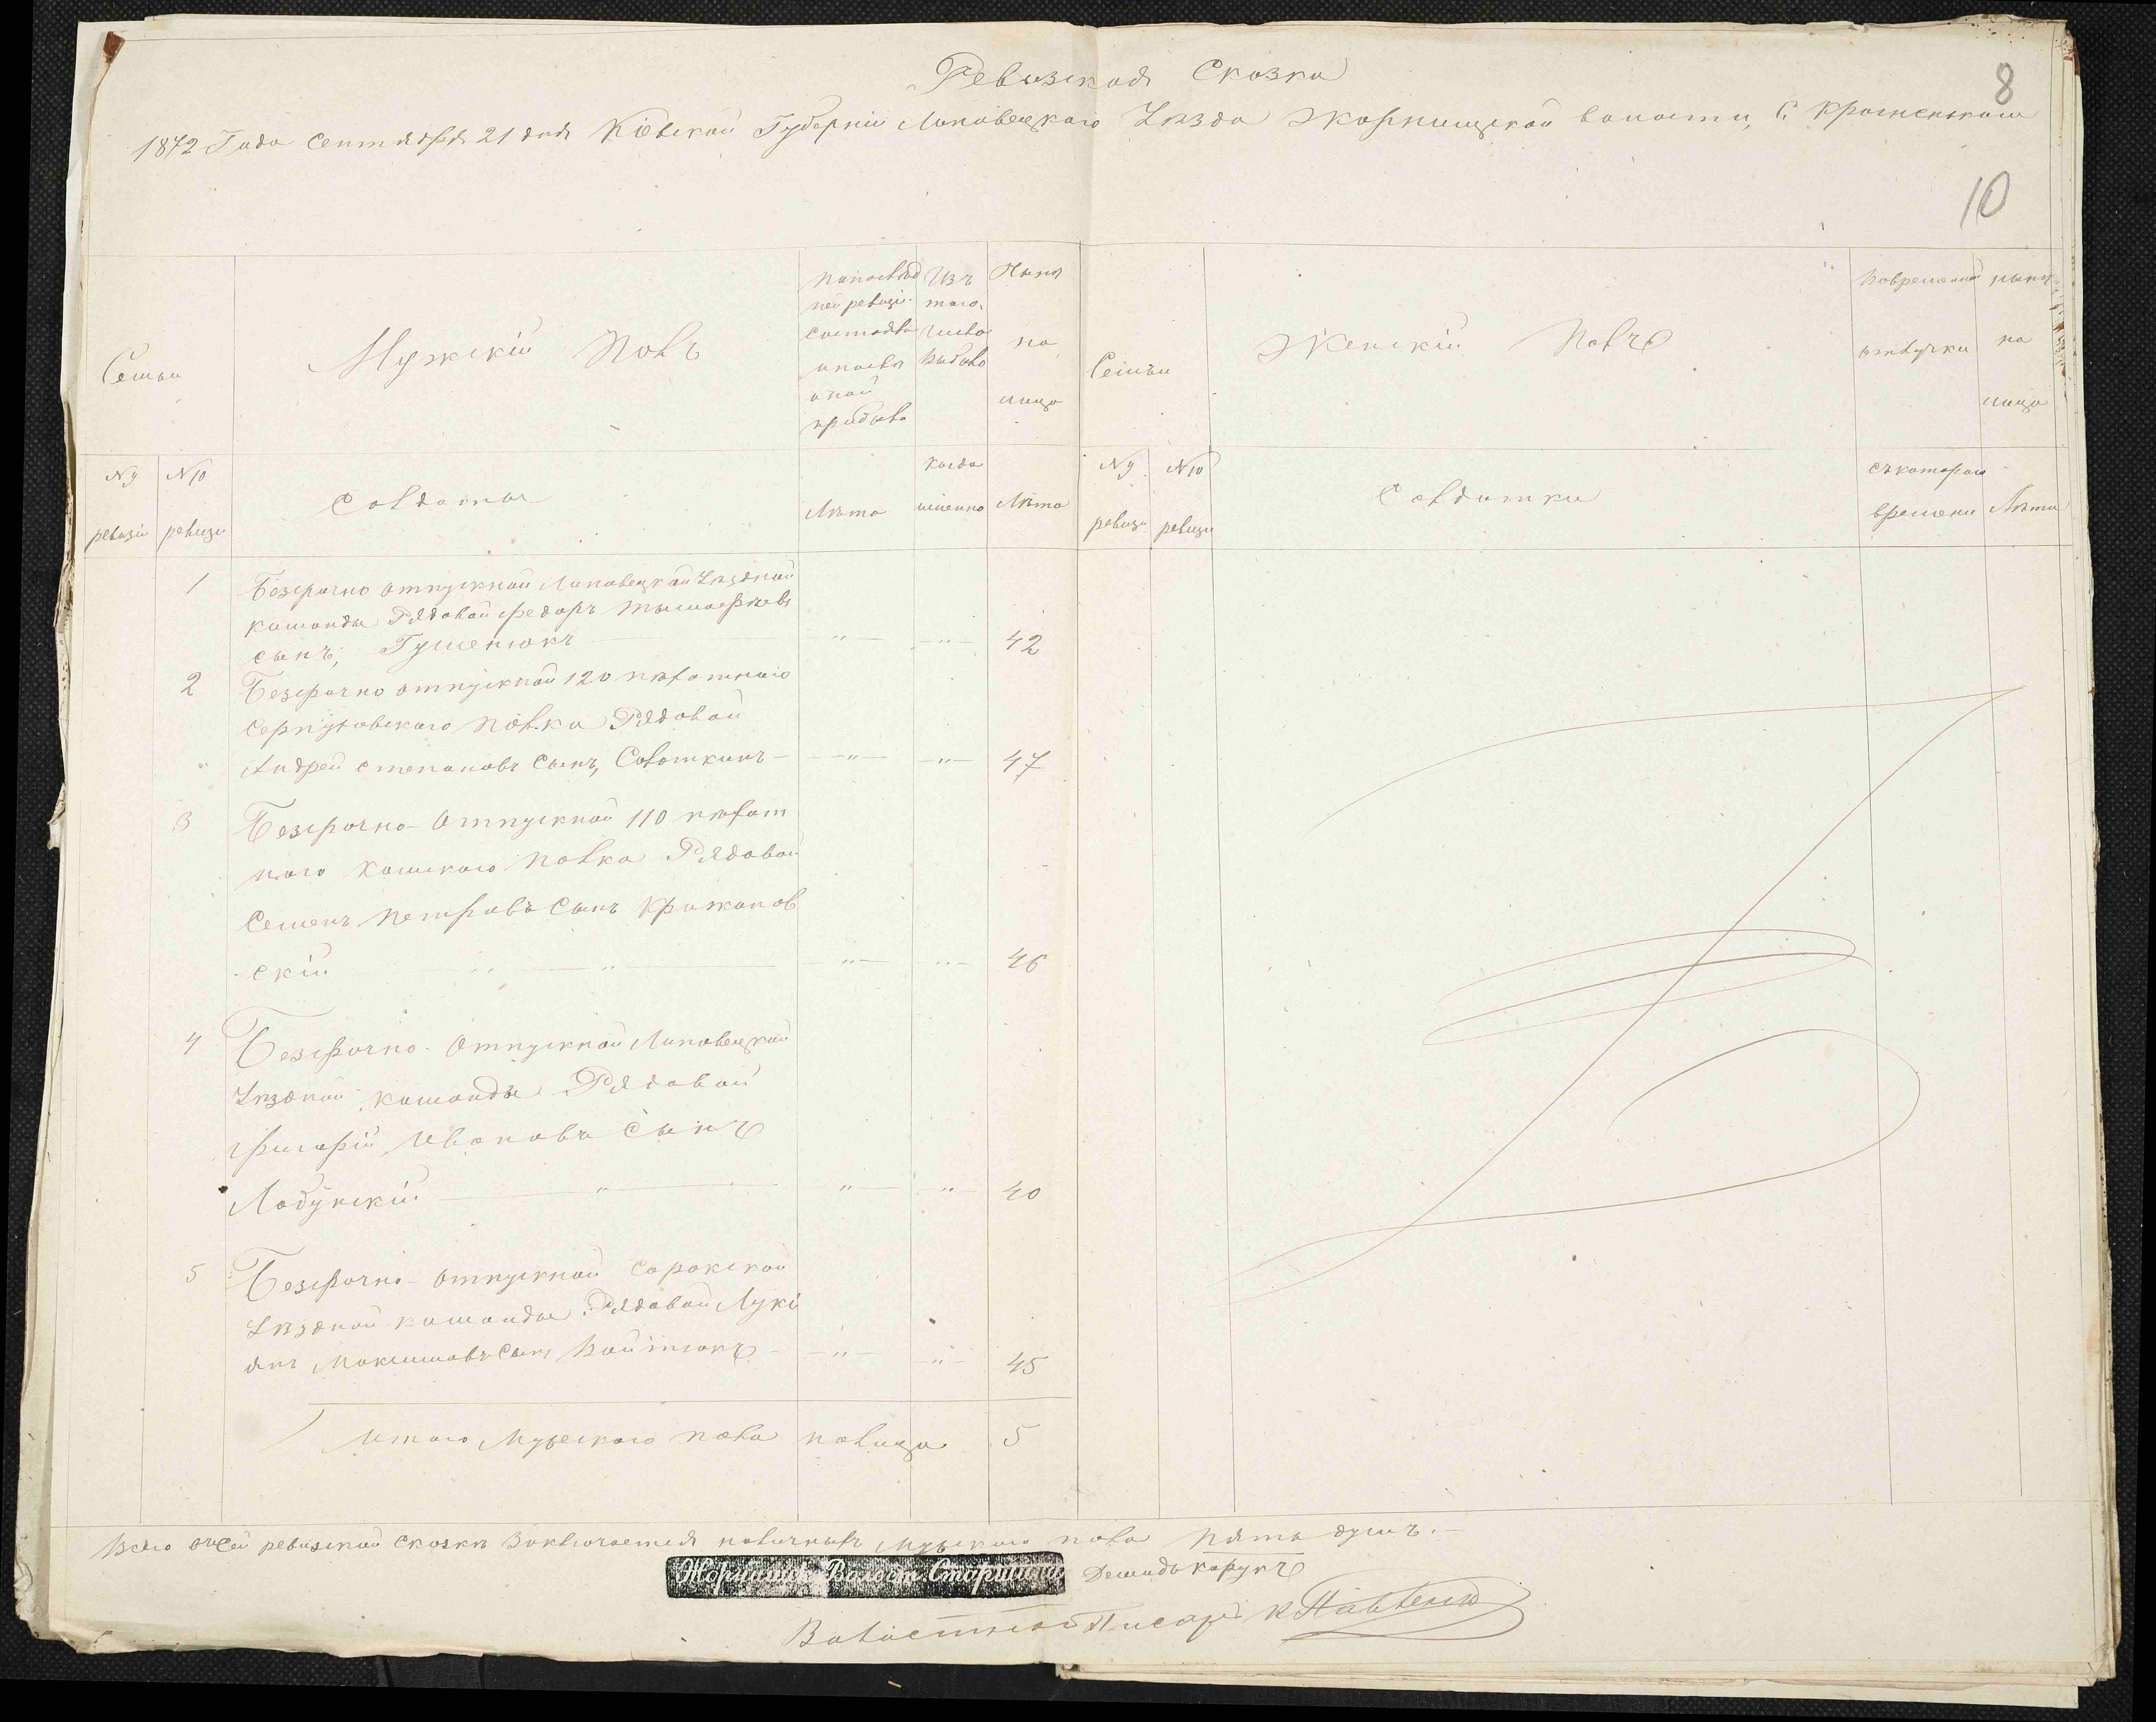 Ревизская Сказка
8
1872 Года Сентября 21 дня Кіевской Губерніи Липовецкаго Уѣзда Жорнищской волости, С.
10
Семьи
Мужскій Полъ
По послѣд
ней ревизіи
состояло
и после
оной
прибыло
Изъ
того
числа
выбыло
Нынѣ
на
лицо
Семьи
Женскій Полъ
Во временной
отлучки
нынѣ
на
лицо
№ 9
ревизіи
№ 10
ревизіи
Солдаты
Лѣта
когда
именно
Лѣта
№ 9
ревизіи
№ 10
ревизіи
Солдатки
съ котораго
времени
Лѣта
1 Безсрочно отпускной Липовецкой Уѣздной
команды Рядовой Федоръ
сынъ, Гуменюкъ — " — — " — 42
2 Безсрочно отпускной 120 пѣхотнаго
Серпуховскаго Полка Рядовой
Андрей Степановъ Сынъ, — " — — " — 47
3 Безсрочно-Отпускной 110 пѣхот
наго Камскаго Полка Рядовой
Семенъ Петровъ Сынъ Крыжанов
-скій — " — — " — — " — 46
4 Безсрочно-Отпускной Липовецкой
Уѣздной команды Рядовой
Григорій Ивановъ Сынъ
Лобунскій — " — " — " — 40
5 Безсрочно-отпускной Сорокской
Уѣздной команды Рядовой Лукі
янъ Максимовъ Сынъ Войтюкъ — " — — " — 45
Итого Мужескаго пола налицо 5
Всего в сей ревизской сказкѣ Заключается наличныхъ Мужскаго пола пять душъ. —
Жорнищск. Волост. Старшина
Волостной Писарь